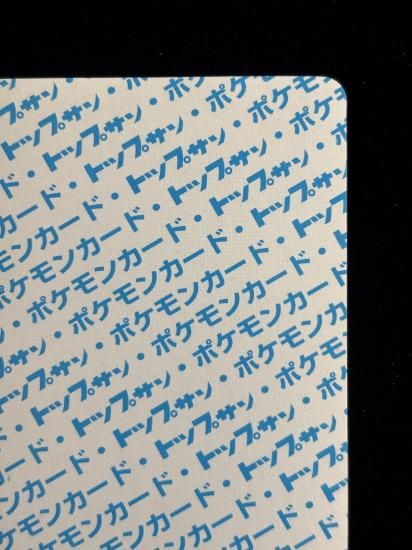 ップサン・
トップサン・ポ
・トップサン・ポケモ
ド・トップサン・ポケモン
ード・トップサン・ポケモ
カード・トップサン・ポケ
ンカード・トップサン・
モンカード・トップサン
ケモンカード・トップ
ポケモンカード・ト
・ポケモンカード・
ン・ポケモンカード
サン・ポケモンカー
プサン・ポケモンカ
トップサン・ポケモン
・トップサン・ポケモ
ド・トップサン・ポケ
ード・トップサン・ポ
カード・トップサン・
ンカード・トップサン
モンカード・トップ